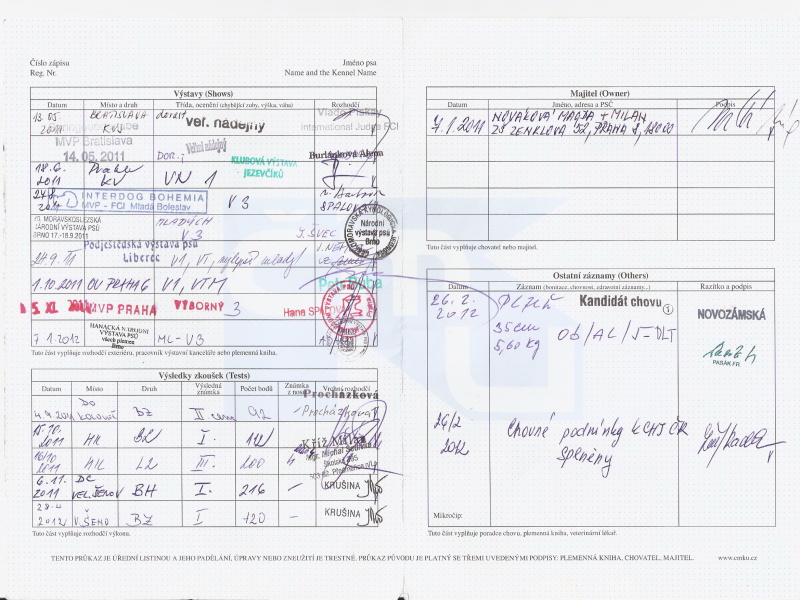 Číslo zápisu
Reg. Nr.
Jméno psa
Name and the Kennel Name
Výstavy (Shows)
Datum Místo a druh Třída, ocenění (chybějící zuby, výška, váha) Rozhodčí
13.05. BRATISLAVA dorost Veř. nadějný
2011 KV
International Judge FCI
MVP Bratislava
14.05.2011 DOR. Velmi nadějný
KLUBOVÁ VÝSTAVA
JEZEVČÍKŮ
18.6. Praha
2011 KV VN 1
INTERDOG BOHEMIA
MVP - FCI Mladá Boleslav V 3
MORAVSKOSLEZSKÁ
NÁRODNÍ VÝSTAVA PSŮ
BRNO 17.-18.9.2011
MLADÝCH
V 3 J. ŠVEC
Národní
výstava psů
Brno
Podještědská výstava psů
Liberec
24.9.11 V1, VT, nejlepší mladý
1.10.2011 OV PRAHA 6 V1, VTM
5. XI. 2011 MVP PRAHA VÝBORNÝ 3 Hana
HANÁCKÁ NÁRODNÍ
VÝSTAVA PSŮ
všech plemen
Brno
7.1.2012 ML-V3
Tuto část vyplňuje rozhodčí exteriéru, pracovník výstavní kanceláře nebo plemenná kniha.
Výsledky zkoušek (Tests)
Datum Místo Druh Výsledná známka Počet bodů Známka z nosu Vrchní rozhodčí
Procházková
BZ II. cena 92 – Procházková
15.10.
2011 HK BL I. 112
16/10
2011 HK L2 III. 200 4
6.11. DC
2011 VEL. ŠENOV BH I. 216 – KRUŠINA
28.4
2012 V. ŠENO BZ I 120 – KRUŠINA
Tuto část vyplňuje rozhodčí výkonu.
Majitel (Owner)
Datum Jméno, adresa a PSČ Podpis
7.1.2011 NOVÁKOVÁ MAGDA + MILAN
ZENKLOVA 52, PRAHA 8, 18000
Tuto část vyplňuje chovatel nebo majitel.
Ostatní záznamy (Others)
Datum Záznam (bonitace, chovnost, zdravotní záznamy...) Razítko a podpis
26.2. PLZEŇ Kandidát chovu 1
2012 35cm
5,60 kg Ob/AL/5-DLT
NOVOZÁMSKÁ
PASÁK FR.
26/2
2012 Chovné podmínky KCHJ ČR
splněny
Mikročip:
Tuto část vyplňuje poradce chovu, plemenná kniha, veterinární lékař.
TENTO PRŮKAZ JE ÚŘEDNÍ LISTINOU A JEHO PADĚLÁNÍ, ÚPRAVY NEBO ZNEUŽITÍ JE TRESTNÉ. PRŮKAZ PŮVODU JE PLATNÝ SE TŘEMI UVEDENÝMI PODPISY: PLEMENNÁ KNIHA, CHOVATEL, MAJITEL.
www.cmku.cz